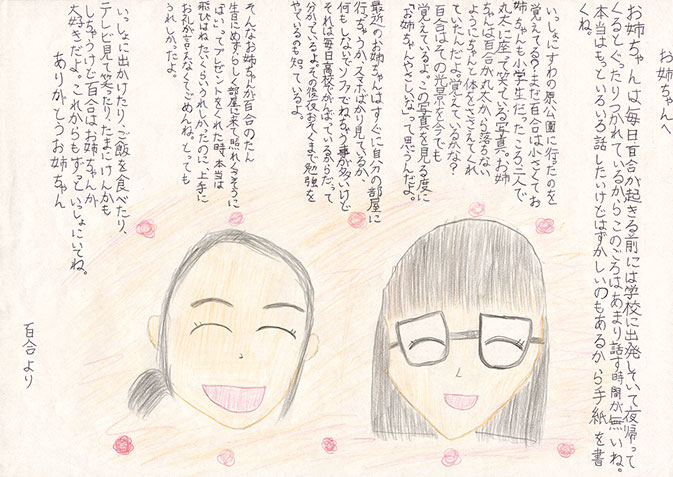 お姉ちゃんへ
お姉ちゃんは、毎日百合が起きる前には学校に出発していて夜帰って
くるとぐったりつかれているからこのごろはあまり話す時間が無いね。
本当はもっといろいろ話したいけどはずかしいのもあるから手紙を書
くね。
いっしょにすわの原公園に行ったのを
覚えてる?まだ百合は小さくてお
姉ちゃんも小学生だったころ、三人で
丸太に座って笑ている写真。お姉
ちゃんは百合が丸太から落ちない
ようにちゃんと体をささえてくれ
ていたんだよ。覚えているかな?
百合はその光景を今でも
覚えているよ。この写真を見る度に
「お姉ちゃんやさしいな」って思うんだよ。
最近のお姉ちゃんはすぐに自分の部屋に
行っちゃうか、スマホばかり見ているか、
何もしないでソファでねちゃう事が多いけど
それは毎日高校でがんばっているからだって
分かっているよ。その後夜おそくまで勉強を
やているのも知っているよ。
そんなお姉ちゃんが百合のたん
生日にめずらしく部屋に来て照れくさそうに
「はい」ってプレゼントをくれた時、本当は
飛びはねたいくらいうれしかったのに上手に
お礼が言えなくてごめんね。とっても
うれしかったよ。
いっしょに出かけたり、ご飯を食べたり、
テレビ見て笑ったり、たまにけんかも
しちゃうけど百合はお姉ちゃんが
大好きだよ。これからもずっといっしょにいてね。
ありがとうお姉ちゃん
百合より